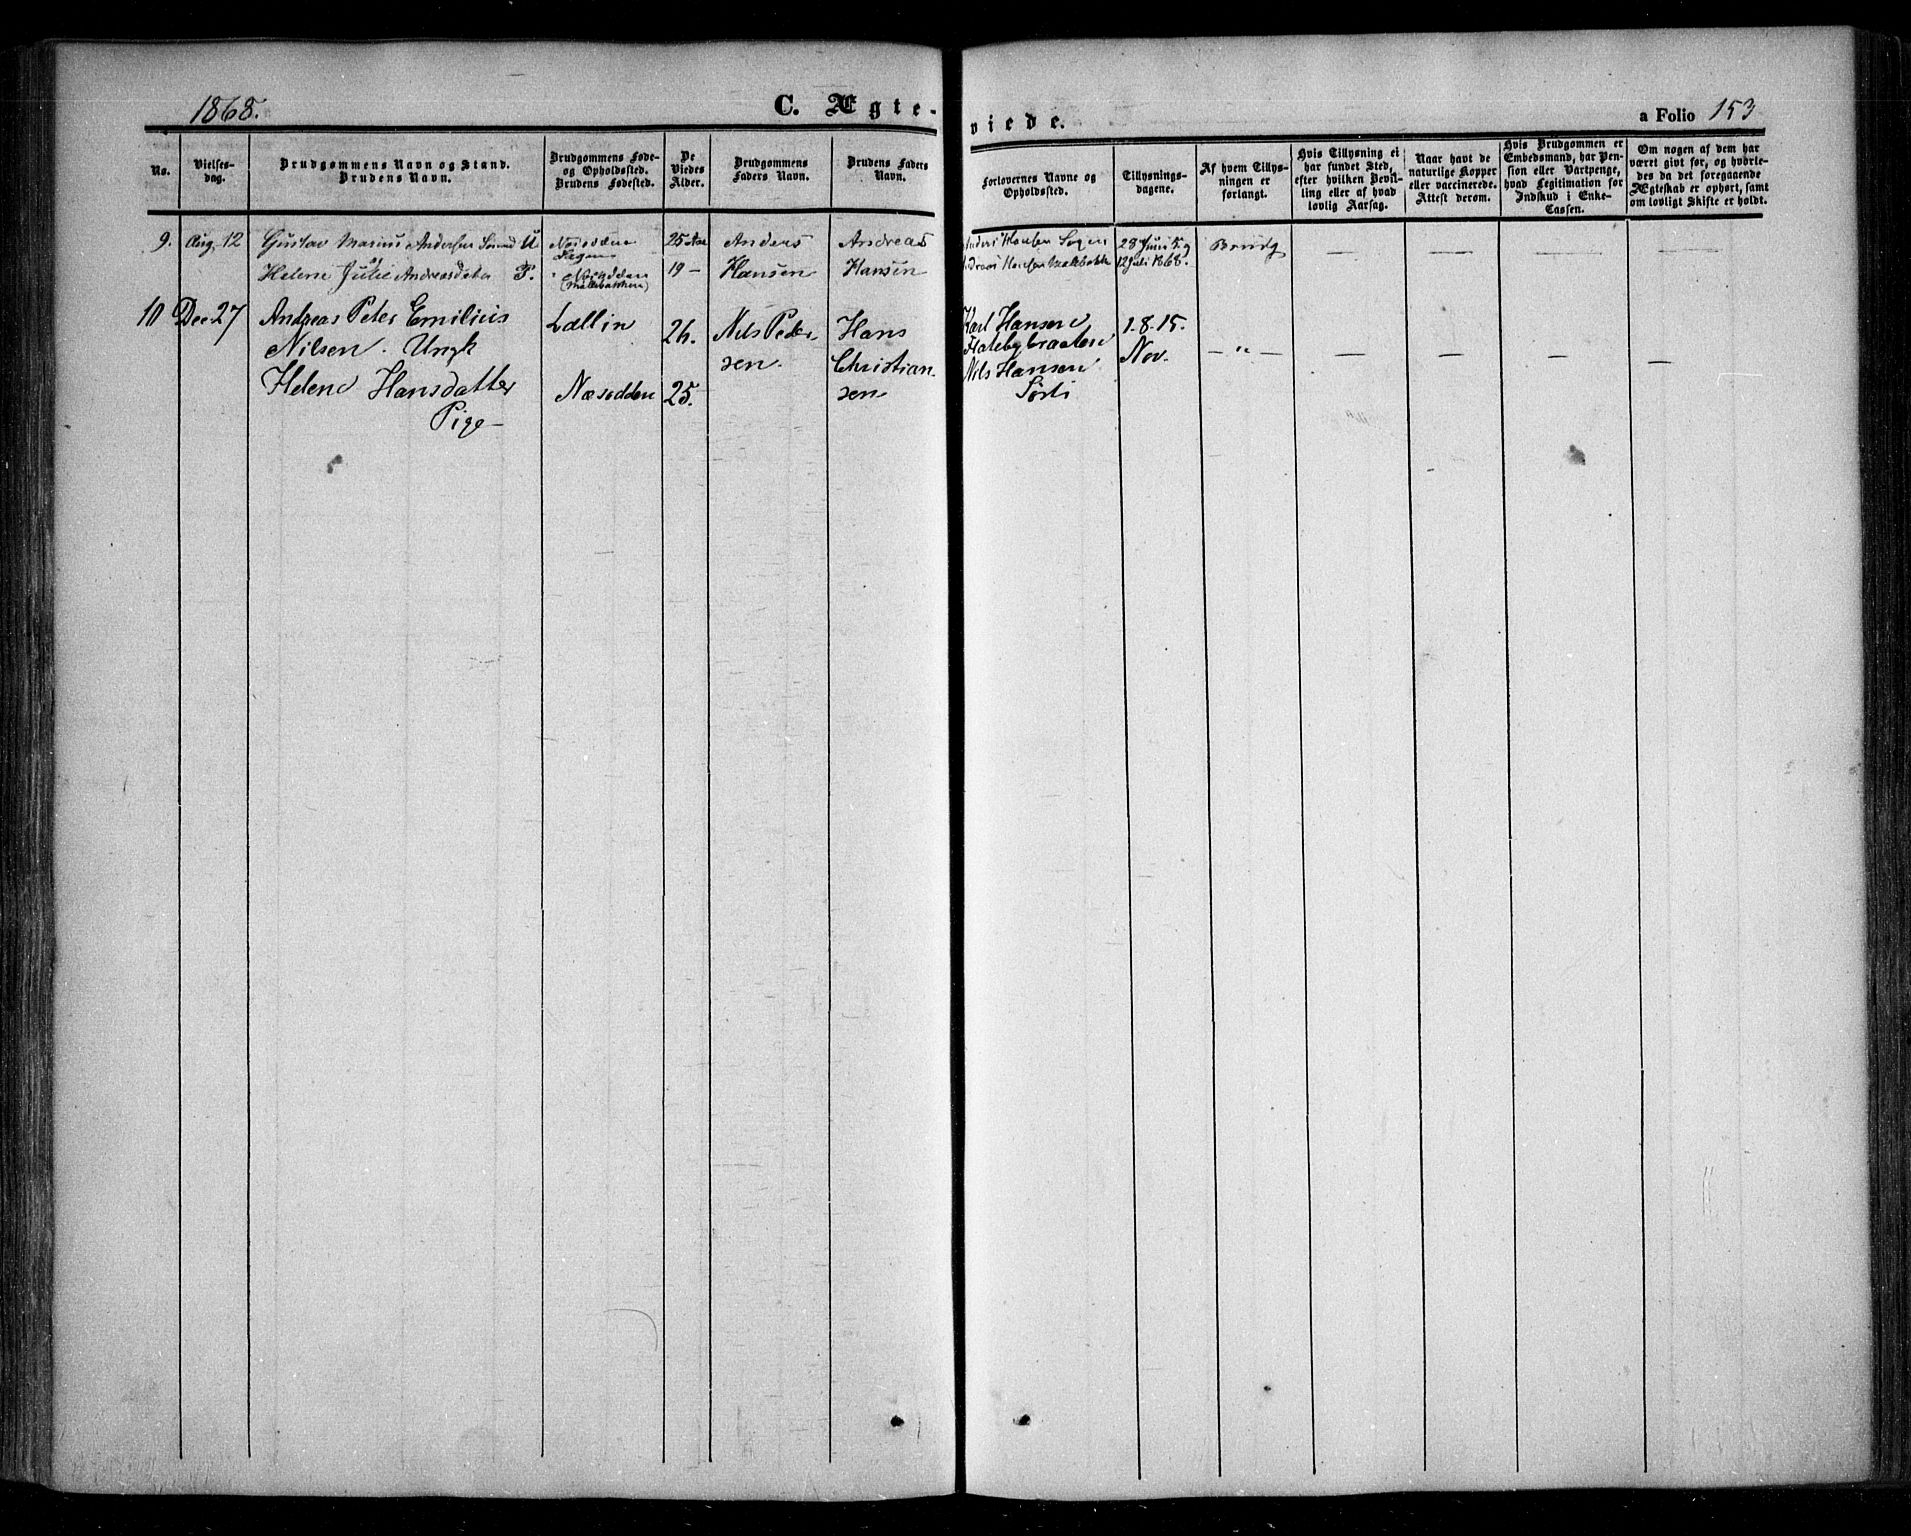 1868.
C. Ægte-
viede.
a Folio 153
No.
Vielses-
dag.
Brudgommens Navn og Stand.
Brudens Navn.
Brudgommens Føde-
og Opholdssted.
Brudens Fødested.
De
Viedes
Alder.
Brudgommens
Faders Navn.
Brudens Faders
Navn.
Forlovernes Navne og
Opholdssted.
Tillysnings-
dagene.
Af hvem Tillys-
ningen er
forlangt.
Hvis Tillysning ei
har fundet Sted,
efter hvilken Bevil-
ling eller af hvad
lovlig Aarsag.
Naar havt de
naturlige Kopper
eller vaccinerede.
Attest derom.
Hvis Brudgommen er
Embedsmand, har Pen-
sion eller Vartpenge,
hvad Legitimation for
Indskud i Enke-
Cassen.
Om nogen af dem har
været givt før, og hvorle-
des da det foregaaende
Ægteskab er ophørt, samt
om lovligt Skifte er holdt.
9. Aug. 12 Gustav Marius Andersen U 25 Anders Andreas Anders Hansen 28 Juni 5 Brudg
Helene Julie Andreasdatter P. 19 - Hansen Hansen Hansen 12 Juli 1868.
10 Dec 27 Andreas Peter Emilius 26. Nils Peder- Hans Karl Hansen 1.8.15.
Nilsen. Ungk sen. Christian- Nov. - " -
Helene Hansdatter Næsodden 25. sen Nils Hansen
Pige -